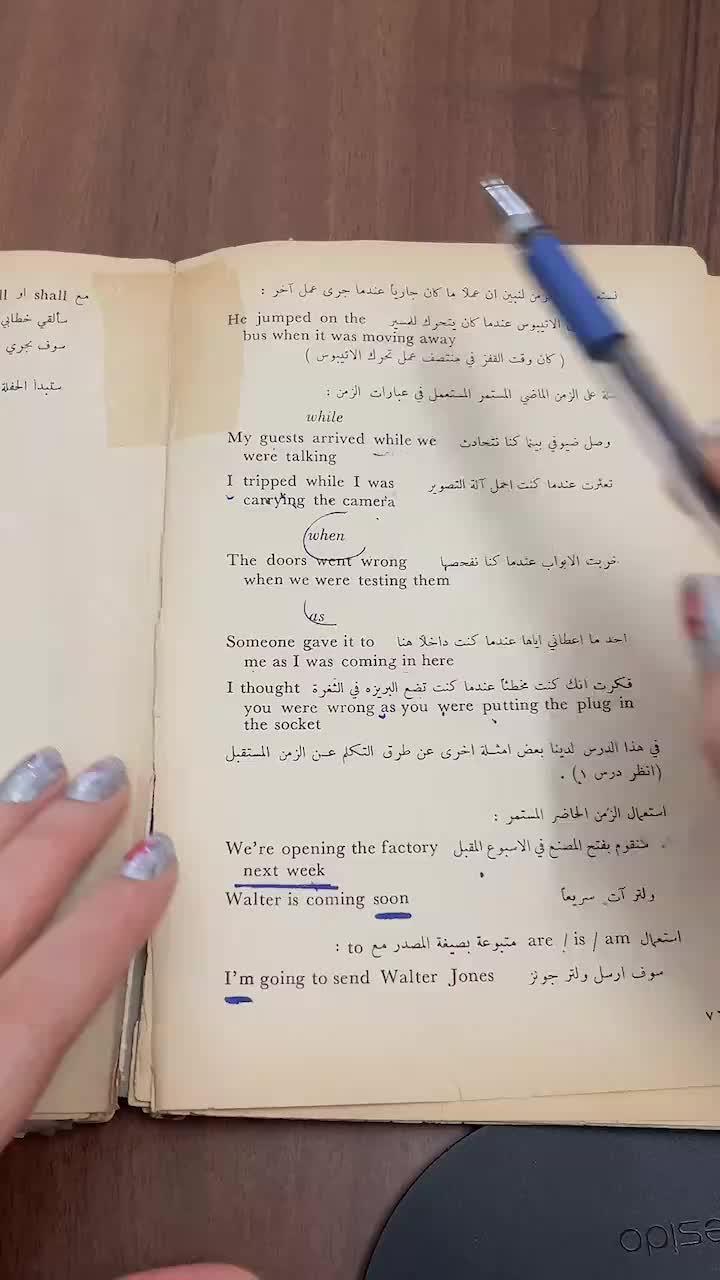 مع shall او ll
سألقي خطابي
سوف يجري
ستبدأ الحفلة
لنبين ان عملا ما كان جارياً عندما جرى عمل آخر :
He jumped on the الاتيبوس عندما كان يتحرك للمسير
bus when it was moving away
( كان وقت القفز في منتصف عمل تحرك الاتيبوس )
على الزمن الماضي المستمر المستعمل في عبارات الزمن :
while
My guests arrived while we وصل ضيوفي بينما كنا نتحادث
were talking
I tripped while I was تعثرت عندما كنت احمل آلة التصوير
carrying the camera
when
The doors went wrong خربت الابواب عندما كنا نفحصها
when we were testing them
as
Someone gave it to احد ما اعطاني اياها عندما كنت داخلا هنا
me as I was coming in here
I thought فكرت انك كنت مخطئاً عندما كنت تضع البريزه في الثغرة
you were wrong as you were putting the plug in
the socket
في هذا الدرس لدينا بعض امثلة اخرى عن طرق التكلم عن الزمن المستقبل
(انظر درس ١) .
استعمال الزمن الحاضر المستمر :
We're opening the factory سنقوم بفتح المصنع في الاسبوع المقبل
next week
Walter is coming soon ولتر آت سريعاً
استعمال are / is / am متبوعة بصيغة المصدر مع to :
I'm going to send Walter Jones سوف ارسل ولتر جونز